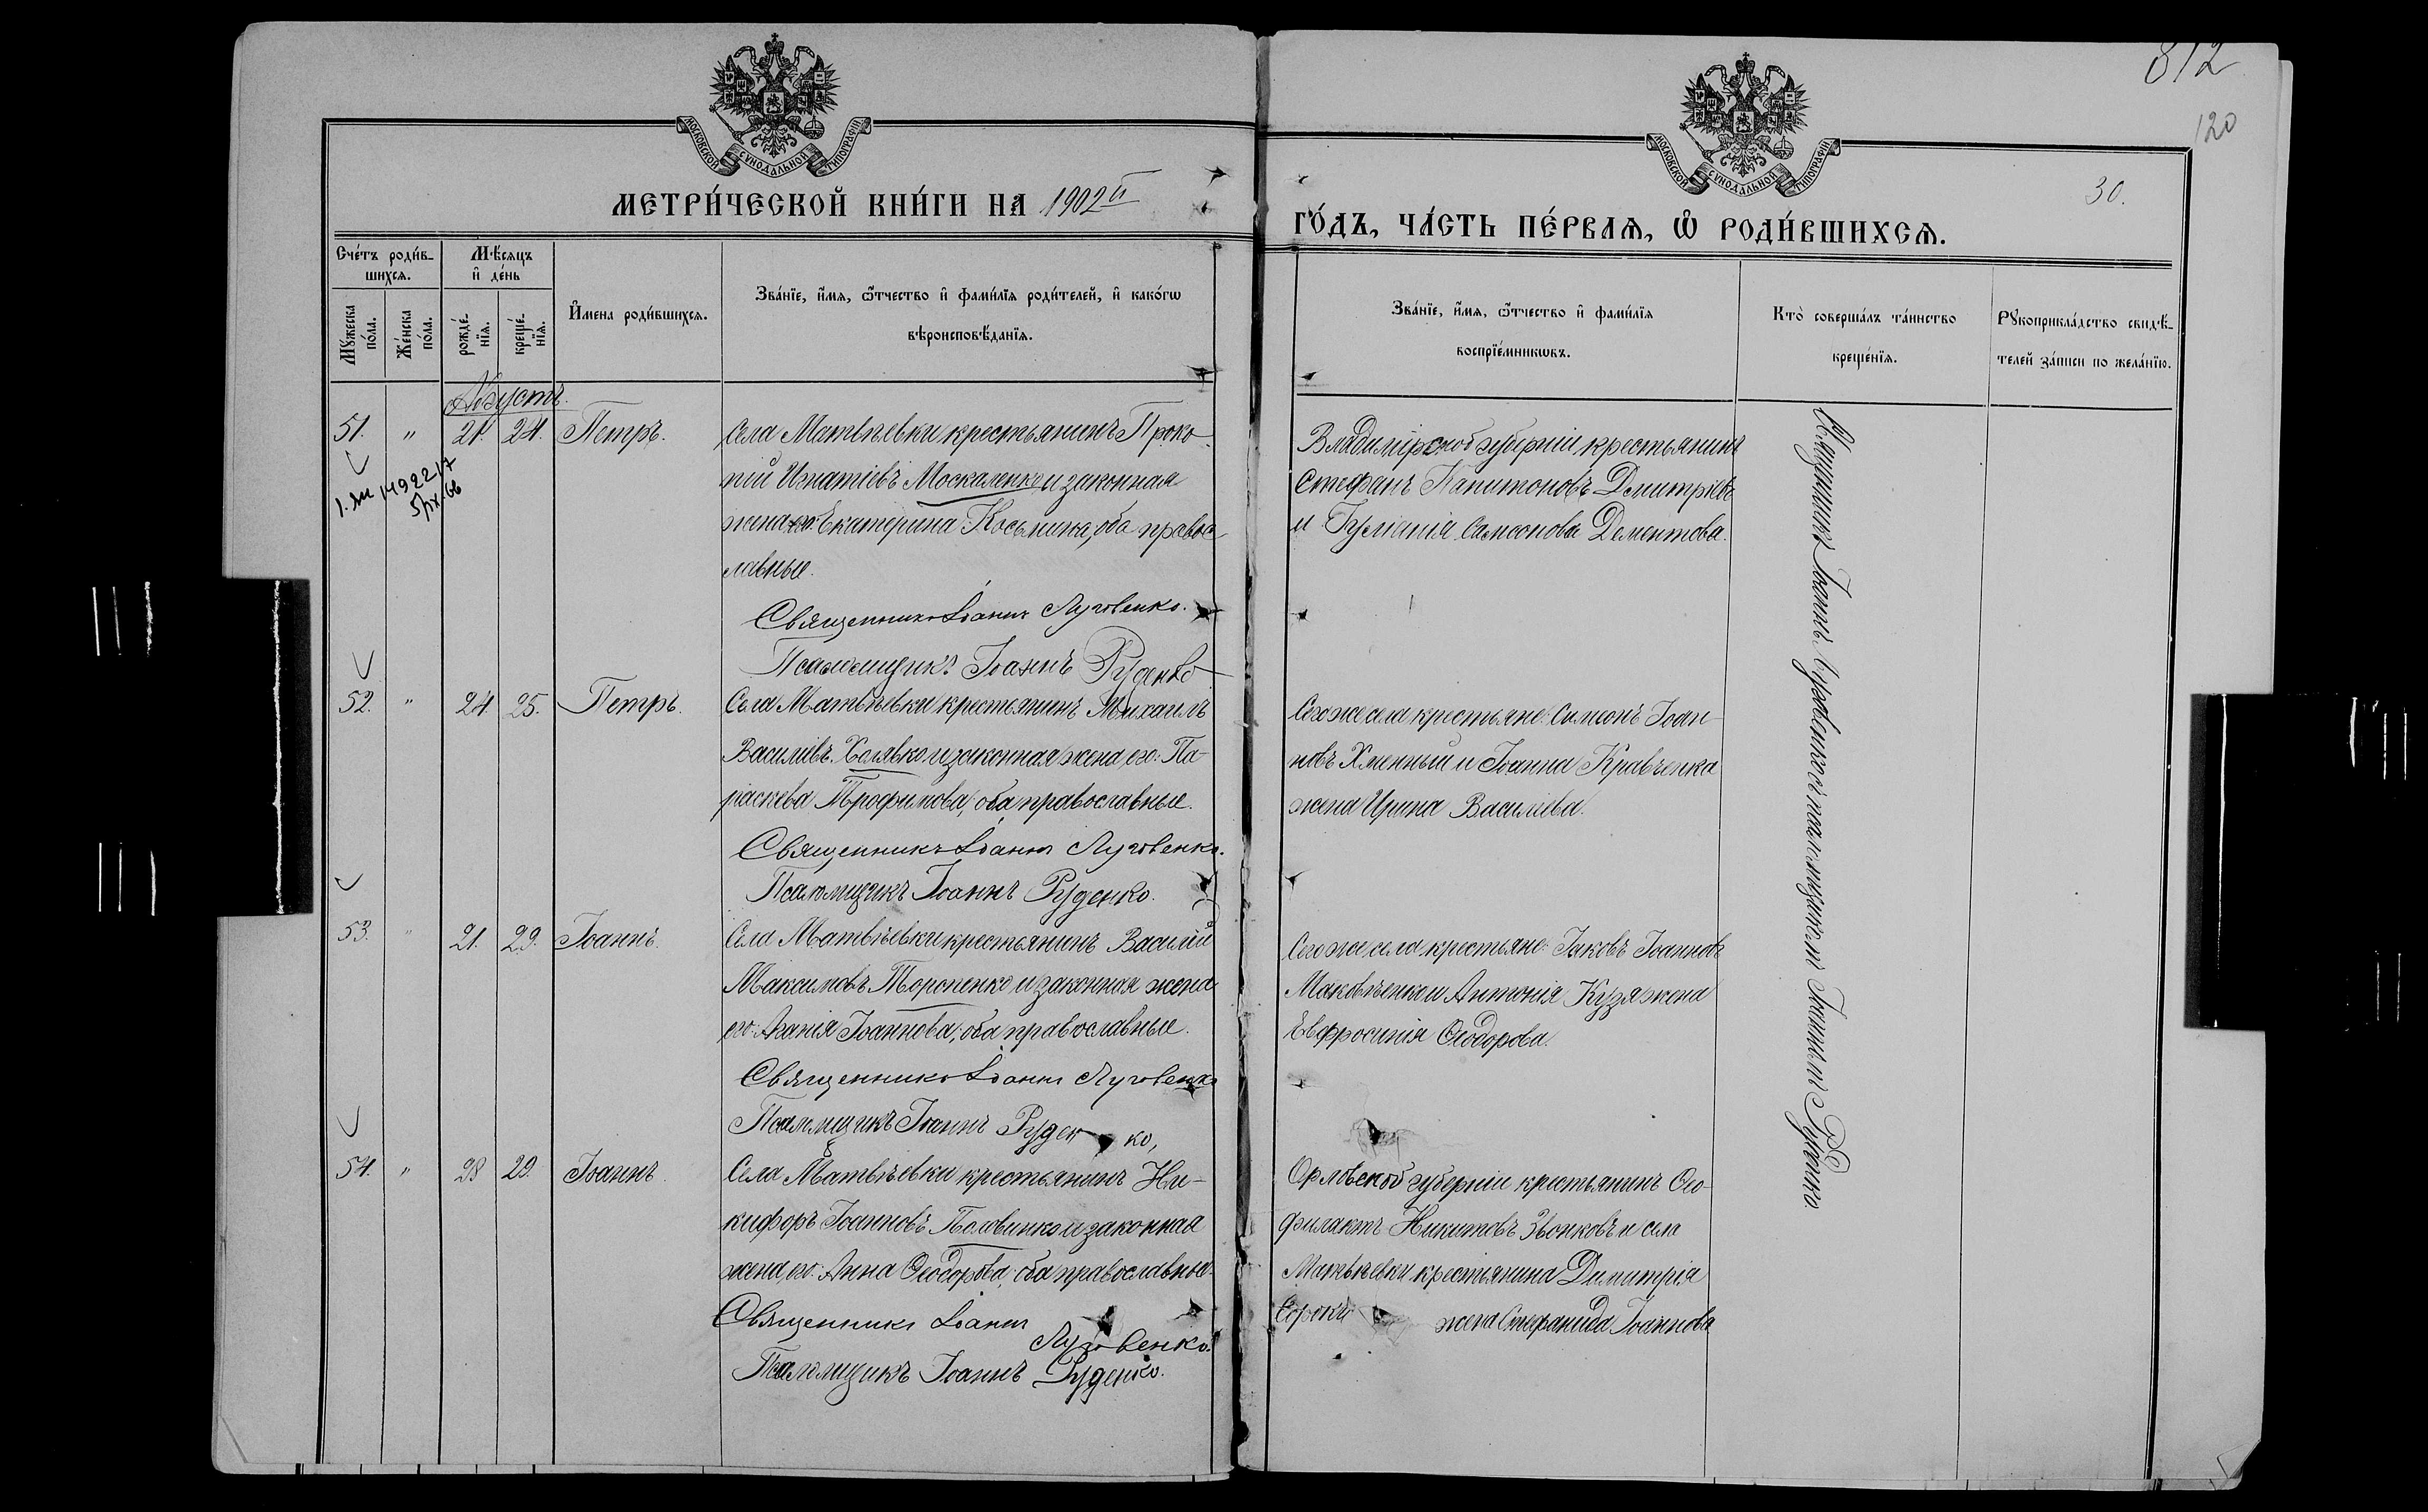 812
120
30.
МОСКОВСКОЙ СУНОДАЛЬНОЙ ТИПОГРАФІИ
МОСКОВСКОЙ СУНОДАЛЬНОЙ ТИПОГРАФІИ
МЕТРИ́ЧЕСКОЙ КНИ́ГИ НА 1902й
ГО́ДЪ, ЧА́СТЬ ПЕ́РВАѦ, Ѡ РОДИ́ВШИХСѦ.
Сче́тъ роди́в-
шихсѧ.
Мѣ́сѧцъ
и҆ де́нь
Мꙋ́жеска
по́ла.
Же́нска
по́ла.
рожде́-
нїѧ.
креще́-
нїѧ.
И҆мена̀ роди́вшихсѧ.
Зва́нїе, и҆́мѧ, ѻ҆́тчество и҆ фами́лїѧ роди́телей, и҆ како́гѡ
вѣроисповѣ́данїѧ.
Зва́нїе, и҆́мѧ, ѻ҆́тчество и҆ фами́лїѧ
воспрїе́мникѡвъ.
Кто̀ соверша́лъ та́инство
креще́нїѧ.
Рꙋкоприкла́дство свидѣ́-
телей за́писи по жела́нїю.
Августъ.
51. " 21. 24. Петръ.
Села Матвѣевки крестьянинъ Проко-
пій Игнатіевъ Москаленко и законная
жена его Екатерина Косьмина, оба правос-
лавные.
Священникъ Іоаннъ Луговенко.
Псаломщикъ Іоаннъ Руденко
Владимірской губерніи крестьянинъ
Стефанъ Капитоновъ Димитріевъ
и Іуліанія Самсонова Дементова.
1. 149221/7
5/IX-66
52. " 24. 25. Петръ.
Села Матвѣевки крестьянинъ Михаилъ
Василіевъ Холявко и законная жена его: Па-
раскева Трофимова, оба православные.
Священникъ Іоаннъ Луговенко.
Псаломщикъ Іоаннъ Руденко.
Сего же села крестьяне: Симеонъ Іоан-
новъ Хменный и Іоанна Кравченка
жена Ирина Василіева.
53. " 21. 29. Іоаннъ.
Села Матвѣевки крестьянинъ Василій
Максимовъ Торопенко и законная жена
его: Агапія Іоаннова, оба православные.
Священникъ Іоаннъ Луговенко
Псаломщикъ Іоаннъ Руденко,
Сего же села крестьяне: Іаковъ Іоанновъ
Маковѣенко и Антонія Кузя жена
Евфросинія Ѳеодорова.
54. " 28 29. Іоаннъ.
Села Матвѣевки крестьянинъ Ни-
кифоръ Іоанновъ Половинко и законная
жена его: Анна Ѳеодорова, оба православные.
Священникъ Іоаннъ
Луговенко.
Псаломщикъ Іоаннъ Руденко.
Орловской губерніи крестьянинъ Ѳео-
филактъ Никитовъ Звонковъ и села
Матвѣевки крестьянина Димитрія
Сороки жена Стефанида Іоаннова
Священникъ Іоаннъ Луговенко съ псаломщикомъ Іоанномъ Руденко.